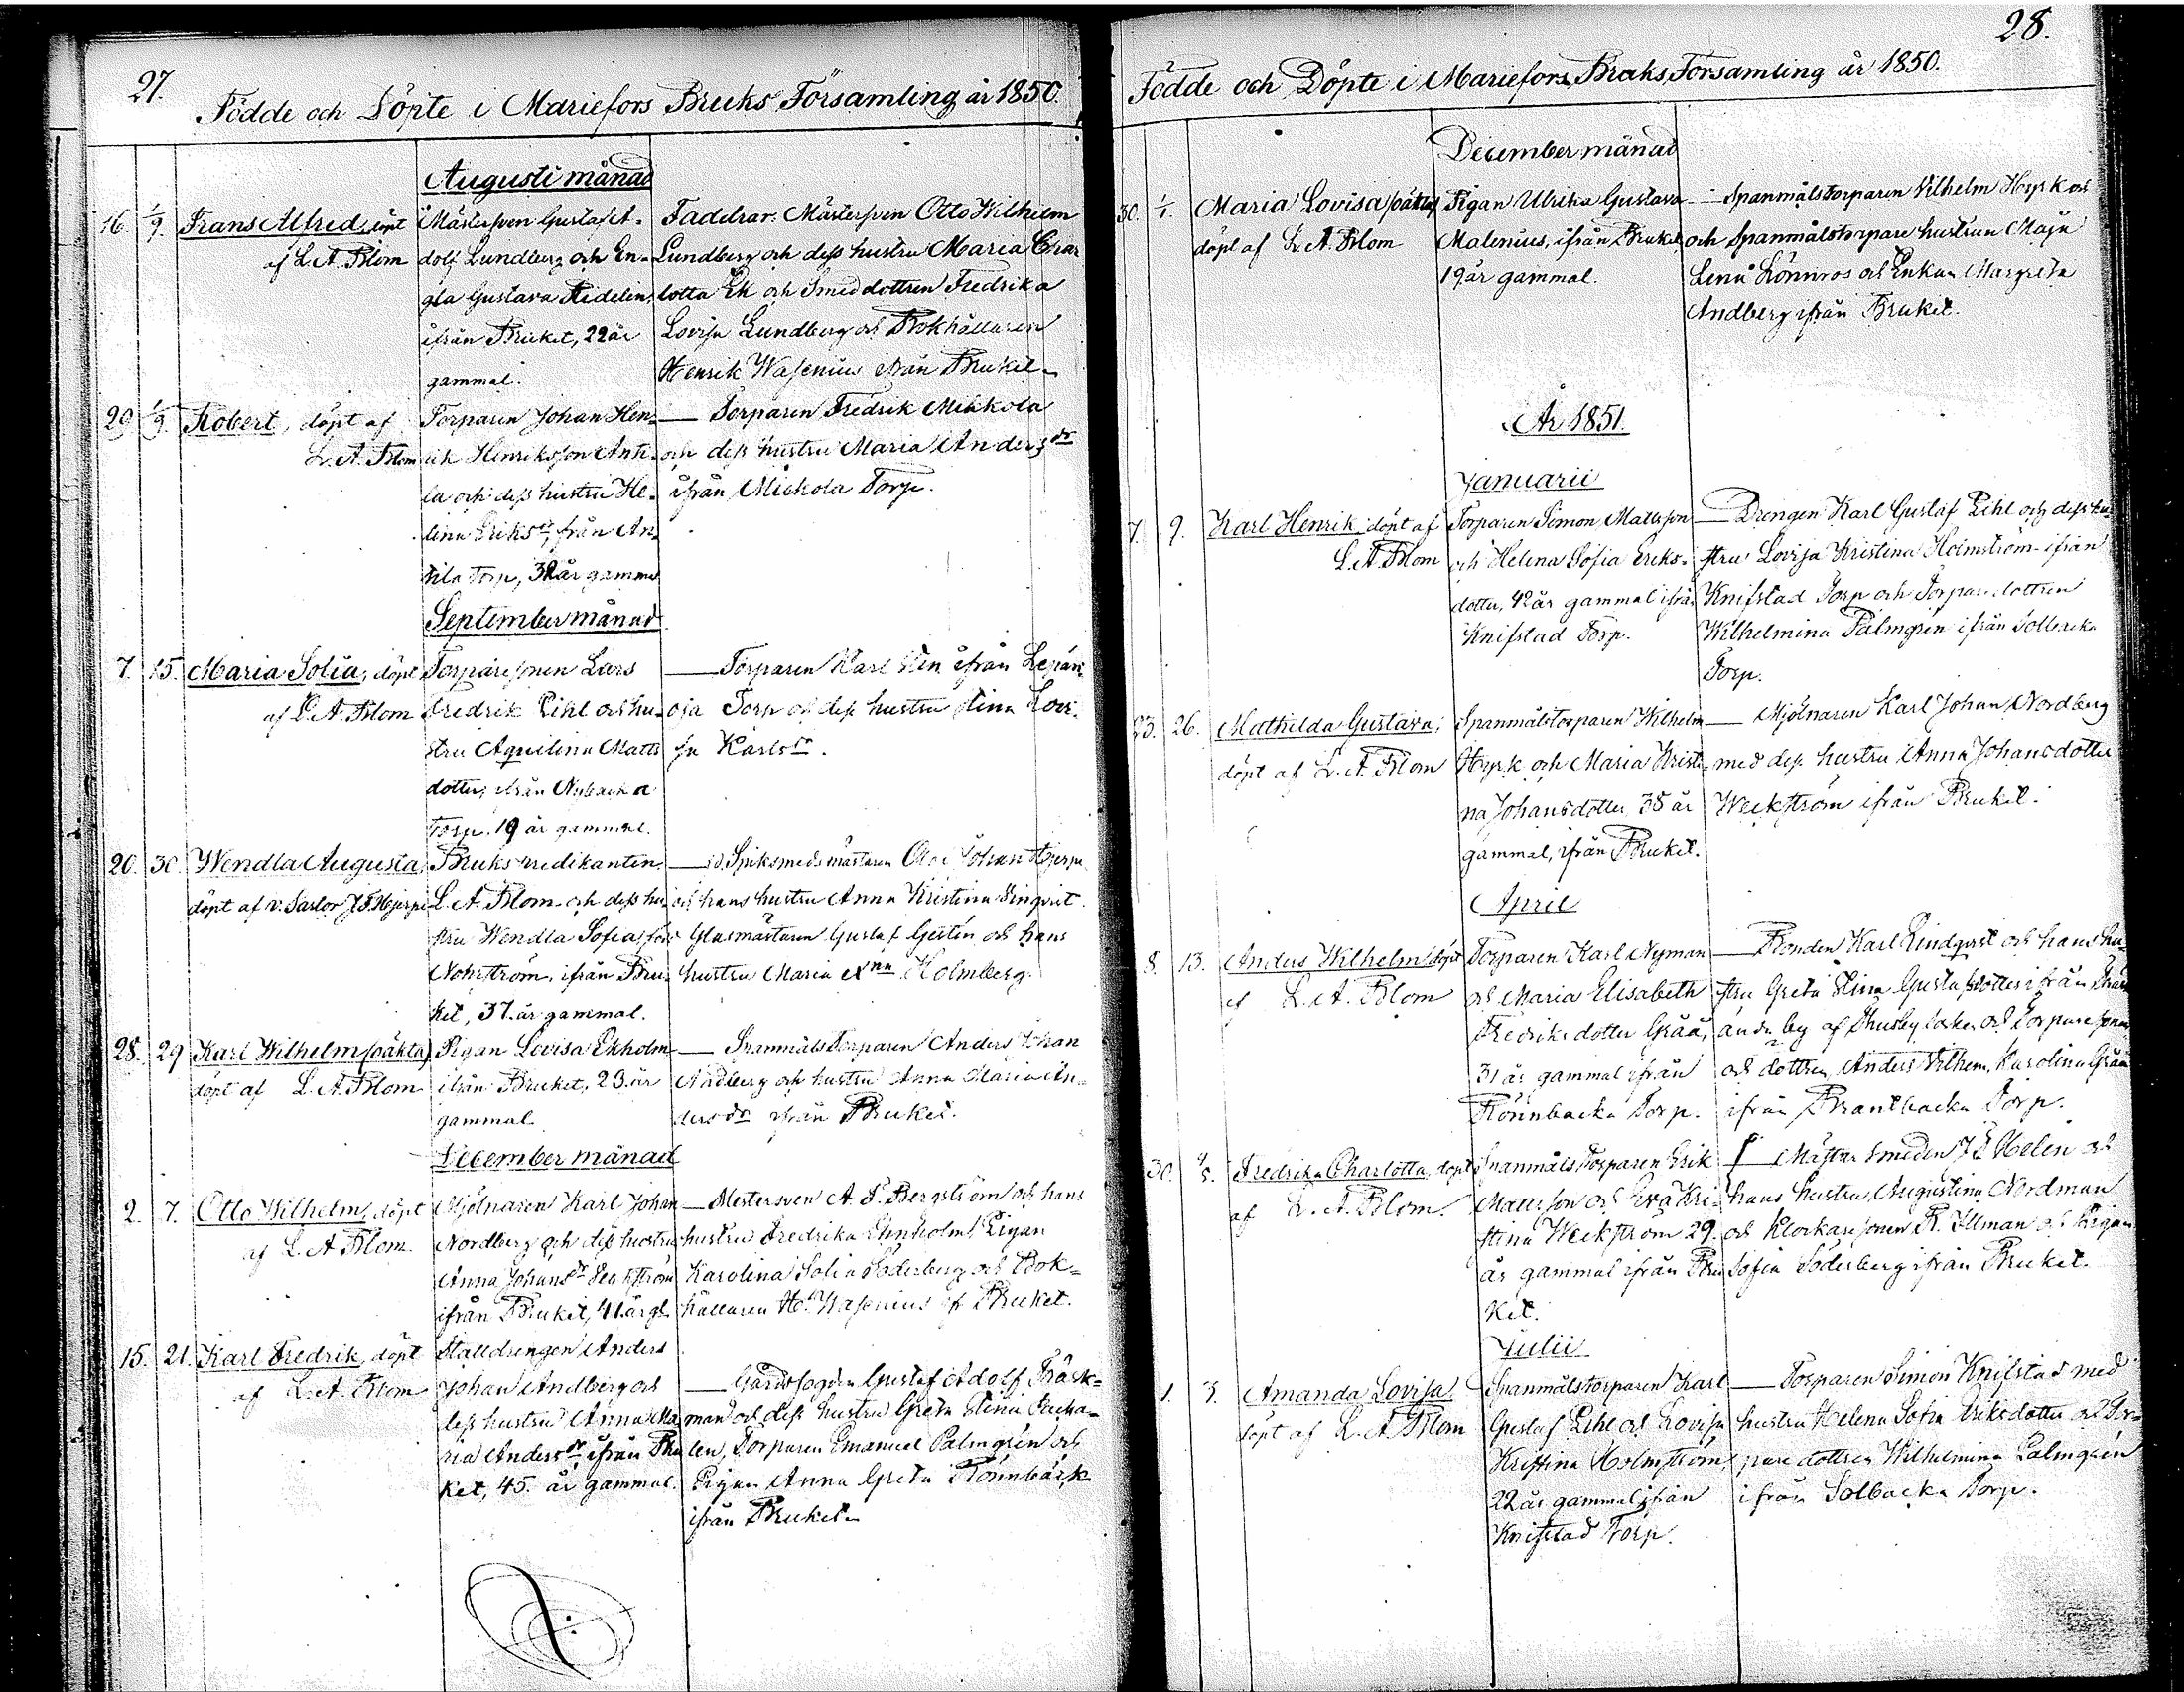 27.
Födde och Döpte i Mariefors Bruks Församling år 1850.
Augusti månad
16. 1/9. Frans Alfred, döpt
af L. A. Blom
Mästersven Gustaf A-
dolf Lundberg och En-
gla Gustava
ifrån Bruket, 22 år
gammal.
Faddrar: Mästersven Otto Wilhelm
Lundberg och dess hustru Maria Char
lotta Ek och Smeddottren Fredrika
Lovisa Lundberg och Bokhållaren
Henrik Wasenius ifrån Bruket.
29 1/9 Robert, döpt af
L. A. Blom
Torparen Johan Hen-
rik Henriksson Ant-
la och dess hustru He-
lena Eriksdr, från An-
tila Torp, 32 år gamma
— Torparen Fredrik Mikkola
och dess hustru Maria Andersdr
ifrån Mickola Torp.
September månad
7. 15. Maria Sofia, döpt
af L. A. Blom
Torparesonen Lars
Fredrik Pihl och hu-
stru Aquilina Matts
dotter, ifrån Nybacka
Torp. 19 år gammal.
— Torparen Karl ifrån
oja Torp och dess hustru Stina Lovi-
sa Karlsdr.
20. 30. Wendla Augusta,
döpt af v. Pastor J. F. Hjerpe
Brukspredikanten
L. A. Blom och dess hu-
stru Wendla Sofia, född
Nohrström, ifrån Bru-
ket, 37. år gammal.
— Spiksmedsmästaren Johan Hjerpe
och hans hustru Anna Kristina
Glasmästaren Gustaf Gestén och hans
hustru Maria Holmberg.
28. 29 Karl Wilhelm (oäkta)
döpt af L. A. Blom
Pigan Lovisa Ekholm
ifrån Bruket, 23. år
gammal
— Spanmåls Torparen Anders Johan
Andberg och hustru Anna Maria An-
dersdr ifrån Bruket.
December månad
2. 7. Otto Wilhelm, döpt
af L. A. Blom.
Mjölnaren Karl Johan
Nordberg och dess hustru
Anna Johansdr Weckström
ifrån Bruket, 41 år gl.
— Mestersven A. F. Bergström och hans
hustru Fredrika Ehnholm, Pigan
Karolina Sofia Söderberg och Bok-
hållaren H. Wasenius af Bruket.
15. 21. Karl Fredrik, döpt
af L. A. Blom
Stalldrengen Anders
Johan Andberg och
dess hustru Anna Ma
ria Andersdr ifrån Bru
ket, 45. år gammal.
— Gårdsfogden Gustaf Adolf Träsk-
man och dess hustru Greta Stina Packa-
len, Torparen Emanuel Palmgrén och
Pigan Anna Greta Rönnbäck
ifrån Bruket.
28.
Födde och Döpte i Mariefors Bruks Församling år 1850.
December månad
30. 1/1. Maria Lovisa (oäkta)
döpt af L. A. Blom
Pigan Ulrika Gustava
Malenius, ifrån Bruket
19 år gammal.
— Spanmålstorparen Vilhelm Hyrk och
och Spanmålstorpare hustrun Maja
Lena Lönnros och Enkan Margreta
Andberg ifrån Bruket.
År 1851.
Januarii
7. 9. Karl Henrik, döpt af
L. A. Blom
Torparen Simon Mattsson
och Helena Sofia Eriks-
dotter, 42 år gammal ifrån
Knifstad Torp.
— Drengen Karl Gustaf Pihl och dess hu-
stru Lovisa Kristina Holmström ifrån
Knifstad Torp och Torparedottren
Wilhelmina Palmgren ifrån Solbacka
Torp.
23. 26. Mathilda Gustava,
döpt af L. A. Blom
Spanmålstorparen Wilhelm
Hyrk och Maria Kristi-
na Johansdotter, 35 år
gammal, ifrån Bruket.
— Mjölnaren Karl Johan Nordberg
med dess hustru Anna Johansdotter
Weckström ifrån Bruket.
April
8. 13. Anders Wilhelm, döpt
af L. A. Blom
Torparen Karl Nyman
och Maria Elisabeth
Fredriksdotter Gråå,
31 år gammal ifrån
Rönnbacka Torp.
— Bonden Karl Lindqvist och hans hu-
stru Greta Stina Gustafsdotter ifrån
ända by af Thusby socken och Torparesonen
och dottren, Anders Vilhem, Karolina Gråå
ifrån Brantbacka Torp.
30. 4/5. Fredrika Charlotta, döpt
af L. A. Blom.
Spanmåls Torparen Erik
Mattsson och Eva Kri-
stina Weckström 29.
år gammal ifrån Bru
ket.
— Mästar Smeden J. E. Helen och
hans hustru, Augustina Nordman
och Klockaresonen R. Ullman och Pigan
Sofia Söderberg ifrån Bruket.
Julii
1. 3. Amanda Lovisa
döpt af L. A. Blom
Spanmålstorparen Karl
Gustaf Pihl och Lovisa
Kristina Holmström,
22 år gammal, ifrån
Knifstad Torp.
— Torparen Simon Knifstad med
hustru Helena Sofia Eriksdotter och Tor-
pare dottren Wilhelmina Palmgrén
ifrån Solbacka Torp.